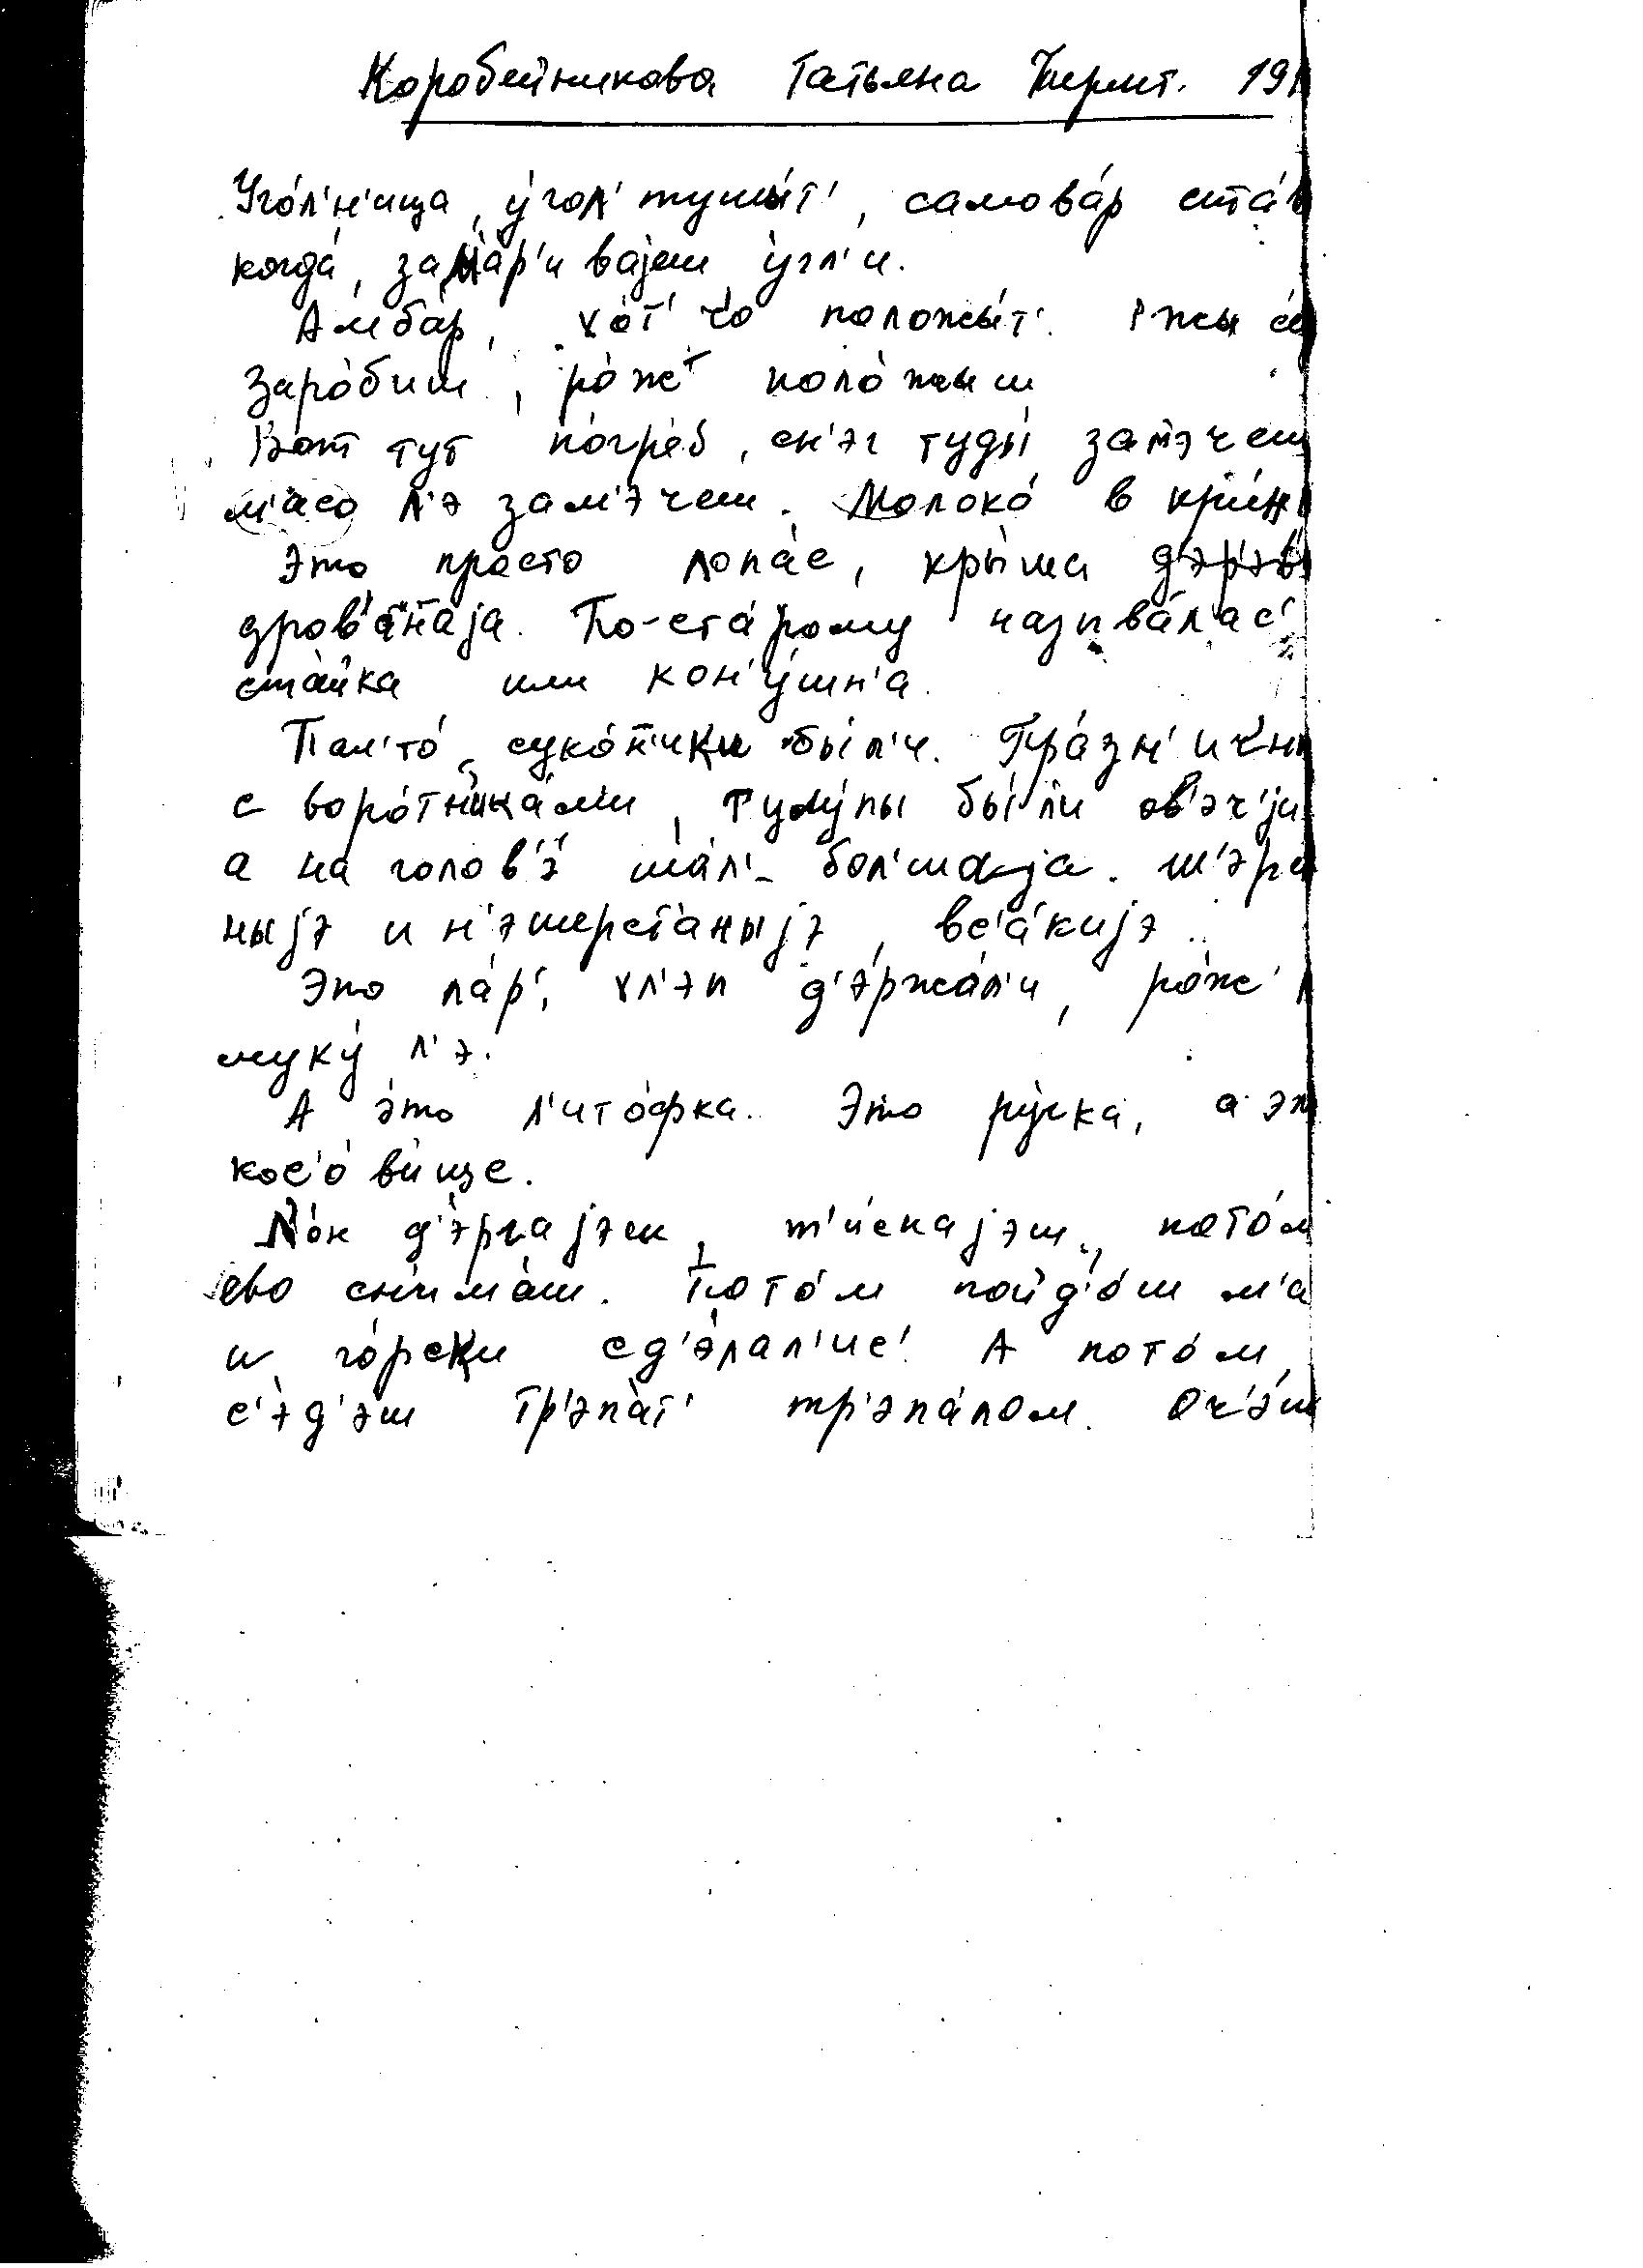 Коробейникова Татьяна 19
Уго́л'н'ища, у́гол' тушы́т', самова́р ста́в
когда́, зама́р'иваjеш у́гл'и.
Амба́р, хо́т' чо положы́т'. Ржы
заро́биш, ро́жет поло́жыш
Вот тут по́гр'еб, сн'эг туды́ зам'э́чеш
м'а́со л'э зам'э́чеш. Молоко́ в кри́н
Это просто лопа́с, кры́ша д'эр'эв
дров'ана́jа. По-ста́рому называ́лас'
ста́йка или кон'у́шн'а.
Пал'то́, суко́н'ики бы́л'и. Пра́зн'ичн
с воротника́ми, тулу́пы бы́ли ов'э́ч'jи
а на голов'э́ ша́л'- бол'ша́jа. Ш'эр
ныjэ и н'эшерст'а́ныjэ, вс'а́киjэ.
Это ла́р', хл'эп д'эржа́л'и, ро́ж'
муку́ л'э.
А э́то л'ито́фка. Э́то ру́чка, а эт
кос'ови́ще.
Л'о́н д'э́ргаjэш, т'и́скаjэш, пото́м
ево сн'има́ш. Пото́м пойд'о́ш м'а
и го́рски сд'э́лал'ис'. А пото́м
с'э́д'эш тр'эпа́т' тр'эпа́лом. Оч'э́ш